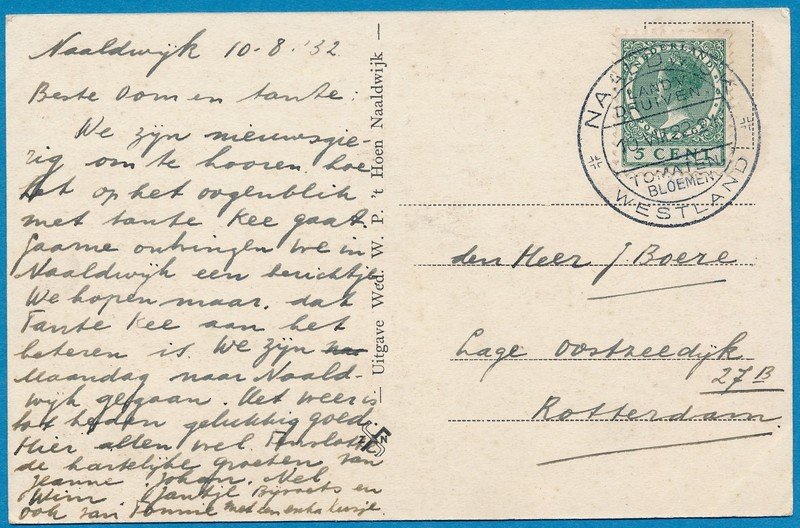 Naaldwijk 10-8-'32
Beste Oom en tante:
We zijn nieuwsgie-
rig om te hooren hoe
het op het oogenblik
met tante Kee gaat.
Gaarne ontvingen we in
Naaldwijk een berichtje
We hopen maar, dat
Tante Kee aan het
beteren is. We zijn
Maandag naar Naald-
wijk gegaan. Het weer is
tot heden gelukkig goed.
Hier allen wel. Tenslotte
de hartelijke groeten van
Jeanne Johan. Nel
Wim Jantje en
ook van Tonnie met den
Uitgave Wed. W. P. 't Hoen Naaldwijk
Z N
NEDERLAND
5 CENT
NAALDWIJK
DRUIVEN
TOMATEN
BLOEMEN
WESTLAND
den Heer J Boere
Lage Oostzeedijk
27B
Rotterdam